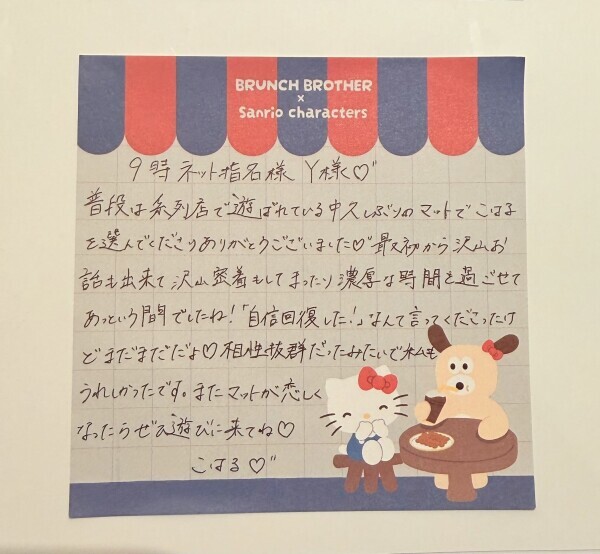 BRUNCH BROTHER
×
Sanrio characters
9時ネット指名様 Y様♡
普段は系列店で遊ばれている中久しぶりのマットでこはる
を選んでくださりありがとうございました♡最初から沢山お
話も出来て沢山密着もしてまったり濃厚な時間を過ごせて
あっという間でしたね!「自信回復した!」なんて言ってくださったけ
どまだまだだよ♡相性抜群だったみたいで私も
うれしかったです。またマットが恋しく
なったらぜひ遊びに来てね♡
こはる♡